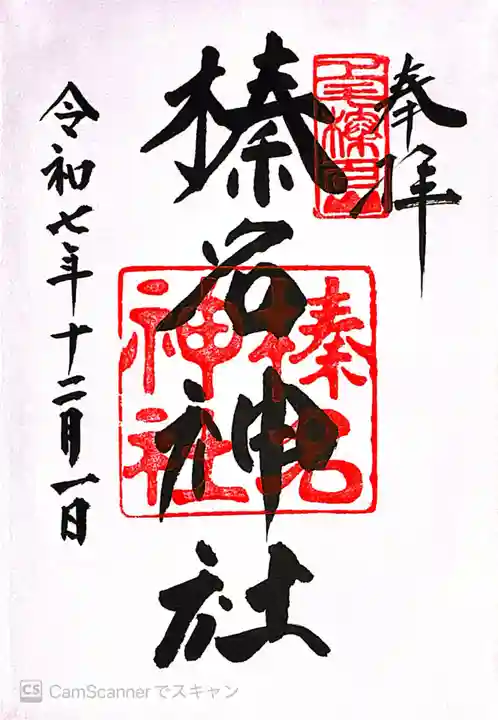 奉拝
榛名神社
榛名
神社
令和七年十二月一日
CS CamScannerでスキャン